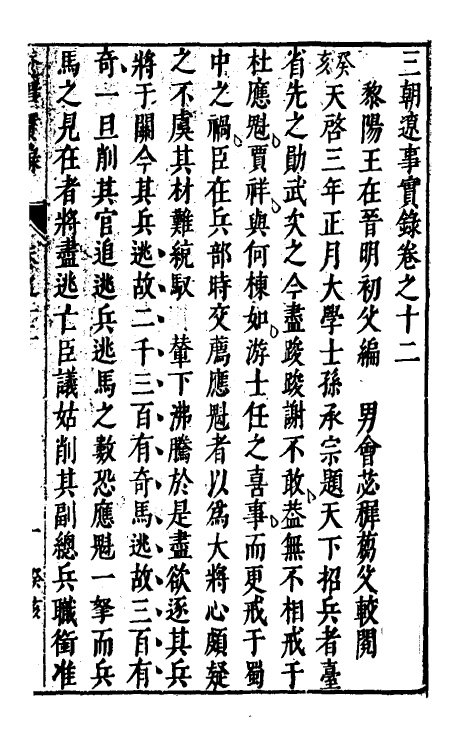 三朝遼事實錄卷之十二
黎陽王在晉明初父編　男會苾穉芻父較閱
癸亥天啓三年正月大學士孫承宗題天下招兵者臺
省先之勛武次之今盡踆踆謝不敢葢無不相戒于
杜應魁賈祥與何棟如游士任之喜事而更戒于蜀
中之禍臣在兵部時交薦應魁者以為大將心頗疑
之不虞其材難統馭　輦下沸騰於是盡欲逐其兵
將于關今其兵逃故二千三百有奇馬逃故三百有
奇一旦削其官追逃兵逃馬之數恐應魁一拏而兵
馬之見在者將盡逃亡臣議姑削其副總兵職銜准